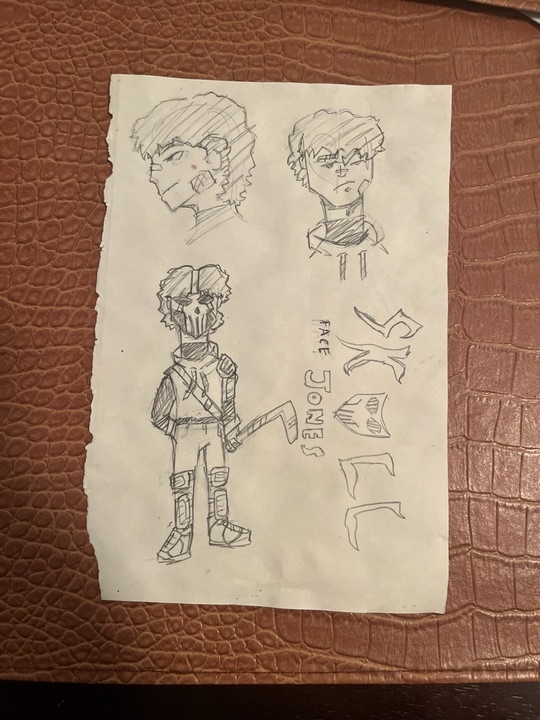 SKULL
FACE JONES